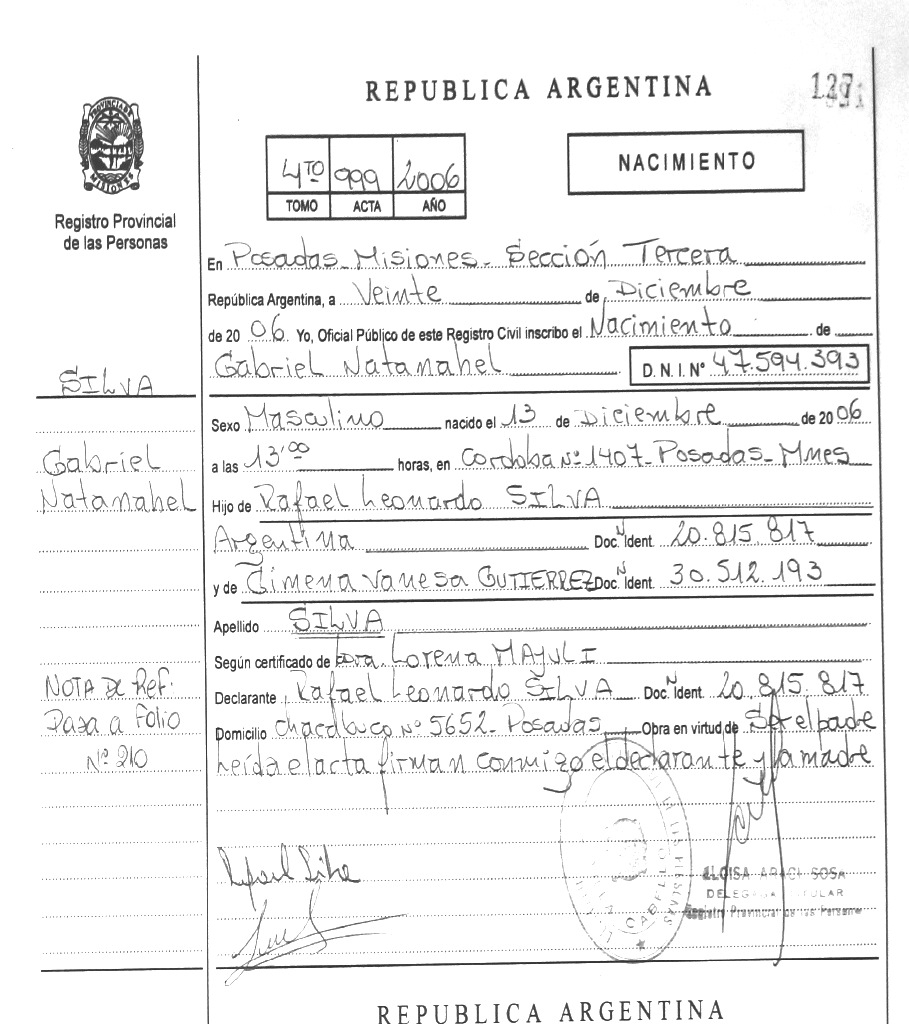 REPUBLICA ARGENTINA
127
PROVINCIA DE MISIONES
Registro Provincial
de las Personas
4TO 999 2006
TOMO ACTA AÑO
NACIMIENTO
En Posadas - Misiones - Sección Tercera
República Argentina, a Veinte de Diciembre
de 20 06. Yo, Oficial Público de este Registro Civil inscribo el Nacimiento de
Gabriel Natanahel D.N.I. Nº 47.594.393
SILVA
Gabriel
Natanahel
Sexo Masculino nacido el 13 de Diciembre de 20 06
a las 13'00 horas, en Cordoba Nº 1407 - Posadas - Mnes
Hijo de Rafael Leonardo SILVA
Argentina Doc. N Ident. 20.815.817
y de Gimena Vanesa GUTIERREZ Doc. N Ident. 30.512.193
Apellido SILVA
Según certificado de Dra. Lorena MAJULI
Declarante Rafael Leonardo SILVA Doc. N Ident. 20.815.817
Domicilio Chacabuco Nº 5652 - Posadas Obra en virtud de Ser el padre
Leída el acta firman conmigo el declarante y la madre
NOTA DE Ref.
Pasa a Folio
Nº 210
Rafael Silva
ELOISA ARACI SOSA
DELEGADA TITULAR
Registro Provincial de las Personas
REPUBLICA ARGENTINA